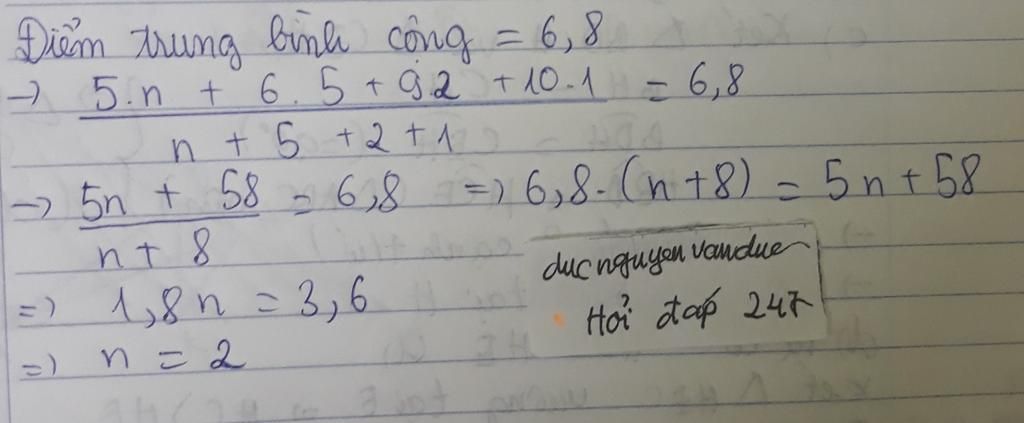 Điểm trung bình cộng = 6,8
→ 5.n + 6.5 + 9.2 + 10.1 = 6,8
n + 5 + 2 + 1
→ 5n + 58 = 6,8 => 6,8.(n+8) = 5n+58
n + 8
=> 1,8n = 3,6
=> n = 2
ducnguyenvandue
Hỏi đáp 247